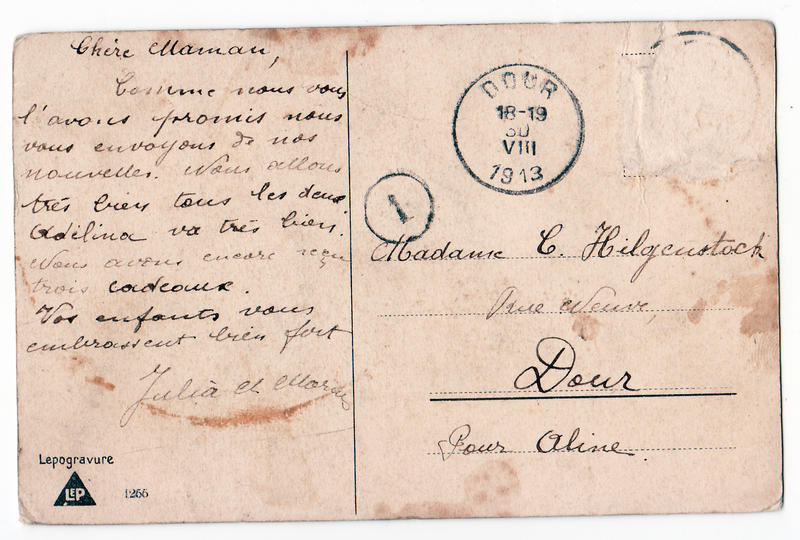 Chère Maman,
Comme nous vous
l'avons promis nous
vous envoyons de nos
nouvelles. Nous allons
très bien tous les deux.
Adélina va très bien.
Nous avons encore reçu
trois cadeaux.
Vos enfants vous
embrassent bien fort
Julia et
Lepogravure
LEP 1255
DOUR
18-19
30
VIII
1913
1
Madame C. Hilgenstock
Rue Neuve,
Dour
Pour Aline.